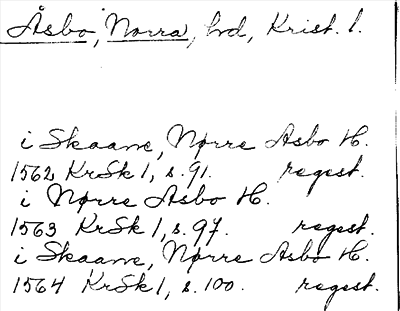 Åsbo, Norra, hd, Krist. l.
i Skaane, Nørre Asbo H.
1562 KrSk 1, s. 91. regest.
i Nørre Asbo H.
1563 KrSk 1, s. 97. regest.
i Skaane, Nørre Asbo H.
1564 KrSk 1, s. 100. regest.